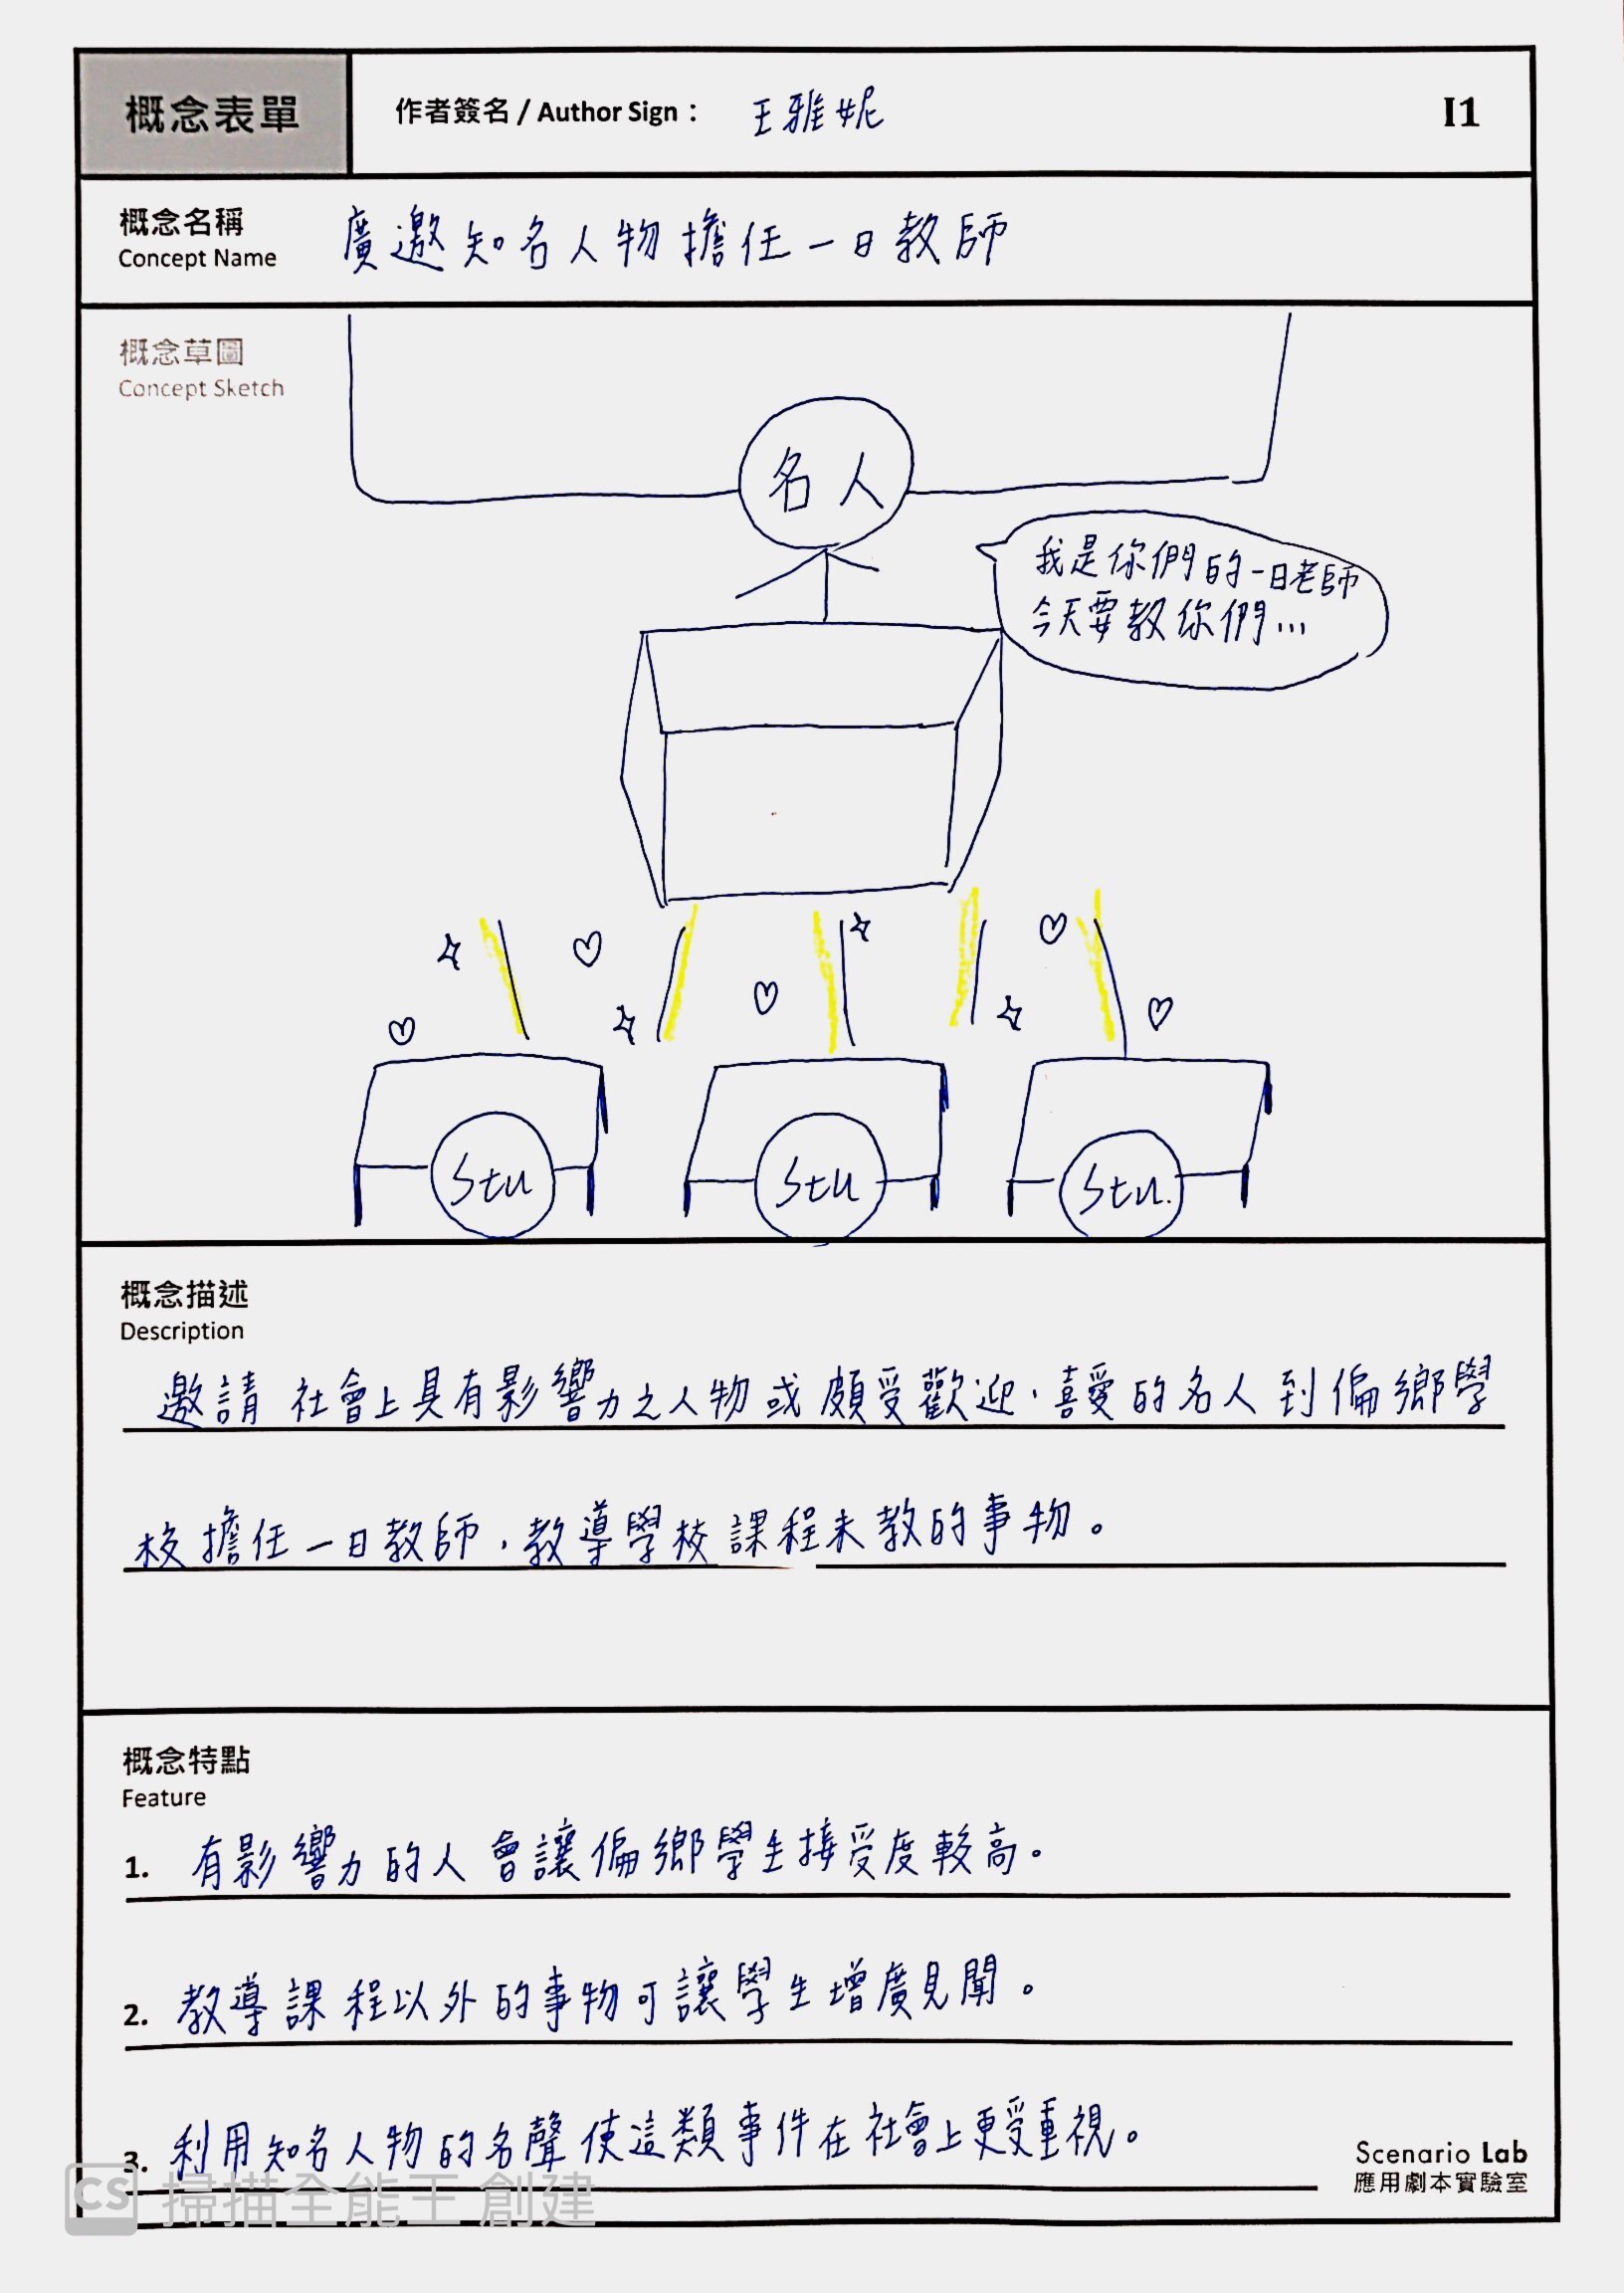 概念表單
作者簽名 / Author Sign： 王雅妮
I1
概念名稱
Concept Name
廣邀知名人物擔任一日教師
概念草圖
Concept Sketch
名人
我是你們的一日老師
今天要教你們...
Stu
Stu
Stu.
概念描述
Description
邀請社會上具有影響力之人物或頗受歡迎、喜愛的名人到偏鄉學
校擔任一日教師，教導學校課程未教的事物。
概念特點
Feature
1. 有影響力的人會讓偏鄉學生接受度較高。
2. 教導課程以外的事物可讓學生增廣見聞。
3. 利用知名人物的名聲使這類事件在社會上更受重視。
Scenario Lab
應用劇本實驗室
CS 掃描全能王 創建